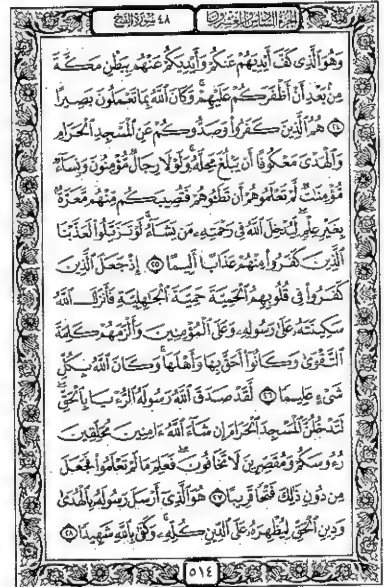 الجُزْءُ السَّادِسُ وَالعِشْرُونَ
٤٨ سُورَةُ الفَتْحِ
وَهُوَ ٱلَّذِى كَفَّ أَيْدِيَهُمْ عَنكُمْ وَأَيْدِيَكُمْ عَنْهُم بِبَطْنِ مَكَّةَ
مِنۢ بَعْدِ أَنْ أَظْفَرَكُمْ عَلَيْهِمْۚ وَكَانَ ٱللَّهُ بِمَا تَعْمَلُونَ بَصِيرًا
٢٤ هُمُ ٱلَّذِينَ كَفَرُوا۟ وَصَدُّوكُمْ عَنِ ٱلْمَسْجِدِ ٱلْحَرَامِ
وَٱلْهَدْىَ مَعْكُوفًا أَن يَبْلُغَ مَحِلَّهُۥۚ وَلَوْلَا رِجَالٌ مُّؤْمِنُونَ وَنِسَآءٌ
مُّؤْمِنَٰتٌ لَّمْ تَعْلَمُوهُمْ أَن تَطَـُٔوهُمْ فَتُصِيبَكُم مِّنْهُم مَّعَرَّةٌۢ
بِغَيْرِ عِلْمٍۖ لِّيُدْخِلَ ٱللَّهُ فِى رَحْمَتِهِۦ مَن يَشَآءُۚ لَوْ تَزَيَّلُوا۟ لَعَذَّبْنَا
ٱلَّذِينَ كَفَرُوا۟ مِنْهُمْ عَذَابًا أَلِيمًا ٢٥ إِذْ جَعَلَ ٱلَّذِينَ
كَفَرُوا۟ فِى قُلُوبِهِمُ ٱلْحَمِيَّةَ حَمِيَّةَ ٱلْجَٰهِلِيَّةِ فَأَنزَلَ ٱللَّهُ
سَكِينَتَهُۥ عَلَىٰ رَسُولِهِۦ وَعَلَى ٱلْمُؤْمِنِينَ وَأَلْزَمَهُمْ كَلِمَةَ
ٱلتَّقْوَىٰ وَكَانُوٓا۟ أَحَقَّ بِهَا وَأَهْلَهَاۚ وَكَانَ ٱللَّهُ بِكُلِّ
شَىْءٍ عَلِيمًا ٢٦ لَّقَدْ صَدَقَ ٱللَّهُ رَسُولَهُ ٱلرُّءْيَا بِٱلْحَقِّۖ
لَتَدْخُلُنَّ ٱلْمَسْجِدَ ٱلْحَرَامَ إِن شَآءَ ٱللَّهُ ءَامِنِينَ مُحَلِّقِينَ
رُءُوسَكُمْ وَمُقَصِّرِينَ لَا تَخَافُونَۖ فَعَلِمَ مَا لَمْ تَعْلَمُوا۟ فَجَعَلَ
مِن دُونِ ذَٰلِكَ فَتْحًا قَرِيبًا ٢٧ هُوَ ٱلَّذِىٓ أَرْسَلَ رَسُولَهُۥ بِٱلْهُدَىٰ
وَدِينِ ٱلْحَقِّ لِيُظْهِرَهُۥ عَلَى ٱلدِّينِ كُلِّهِۦۚ وَكَفَىٰ بِٱللَّهِ شَهِيدًا ٢٨
٥١٤